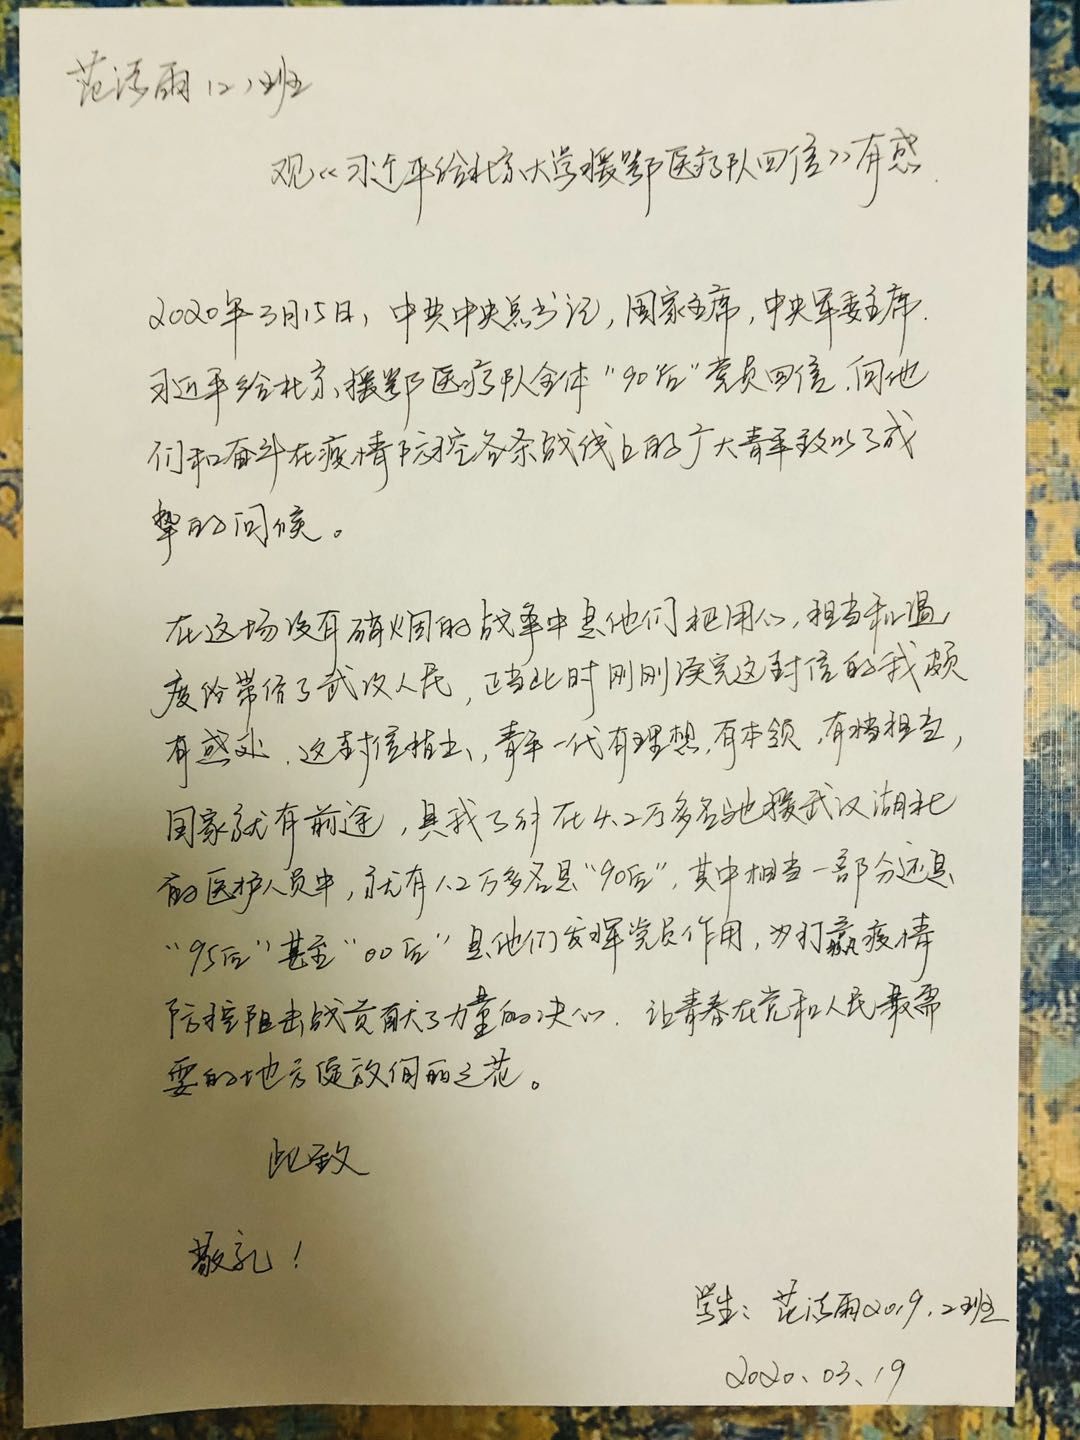 范洁雨(2)班
观《习近平给北京大学援鄂医疗队回信》有感.
2020年3月15日,中共中央总书记,国家主席,中央军委主席.
习近平给北京援鄂医疗队全体“90后”党员回信.向他
们和奋斗在疫情防控各条战线上的广大青年致以了诚
挚的问候。
在这场没有硝烟的战争中是他们把用心,担当和温
度给带给了武汉人民,正当此时刚刚读完这封信的我颇
有感处.这封信指出,青年一代有理想.有本领.有担当,
国家就有前途,具我了解在4.2万多名驰援武汉湖北
的医护人员中,就有1.2万多名是“90后”,其中相当一部分还是
“95后”甚至“00后”是他们发挥党员作用,为打赢疫情
防控阻击战贡献了力量的决心.让青春在党和人民最需
要的地方绽放绚丽之花。
此致
敬礼!
学生:范洁雨2019.2班
2020.03.19